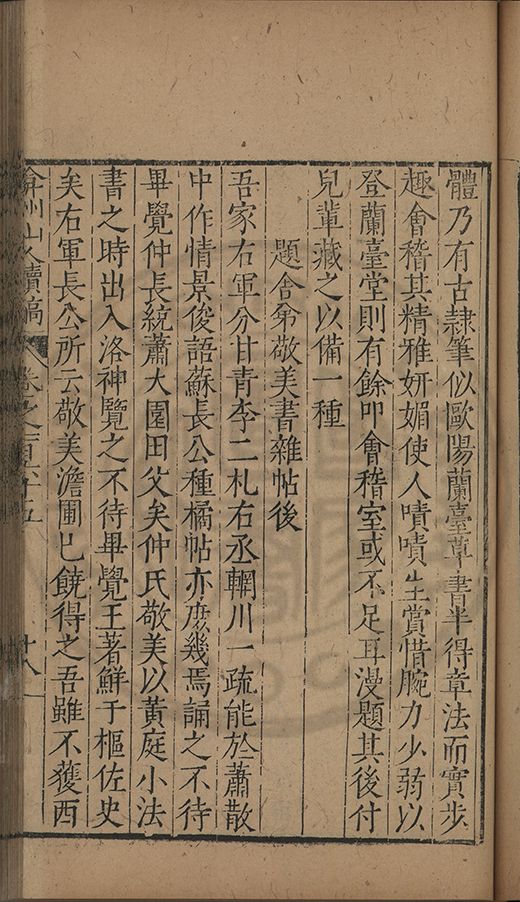 體乃有古隷筆似歐陽蘭臺草書半得章法而實步
趣會稽其精雅妍媚使人嘖嘖生賞惜腕力少弱以
登蘭臺堂則有餘叩會稽室或不足耳漫題其後付
兒輩藏之以備一種
題舍弟敬美書雜帖後
吾家右軍分甘青李二札右丞輞川一疏能於蕭散
中作情景俊語蘇長公種橘帖亦庶幾焉誦之不待
畢覺仲長統蕭大園田父矣仲氏敬美以黃庭小法
書之時出入洛神覽之不待畢覺王著鮮于樞佐史
矣右軍長公所云敬美澹圃已饒得之吾雖不獲西
弇州山人續稿 卷之百六十五 十八